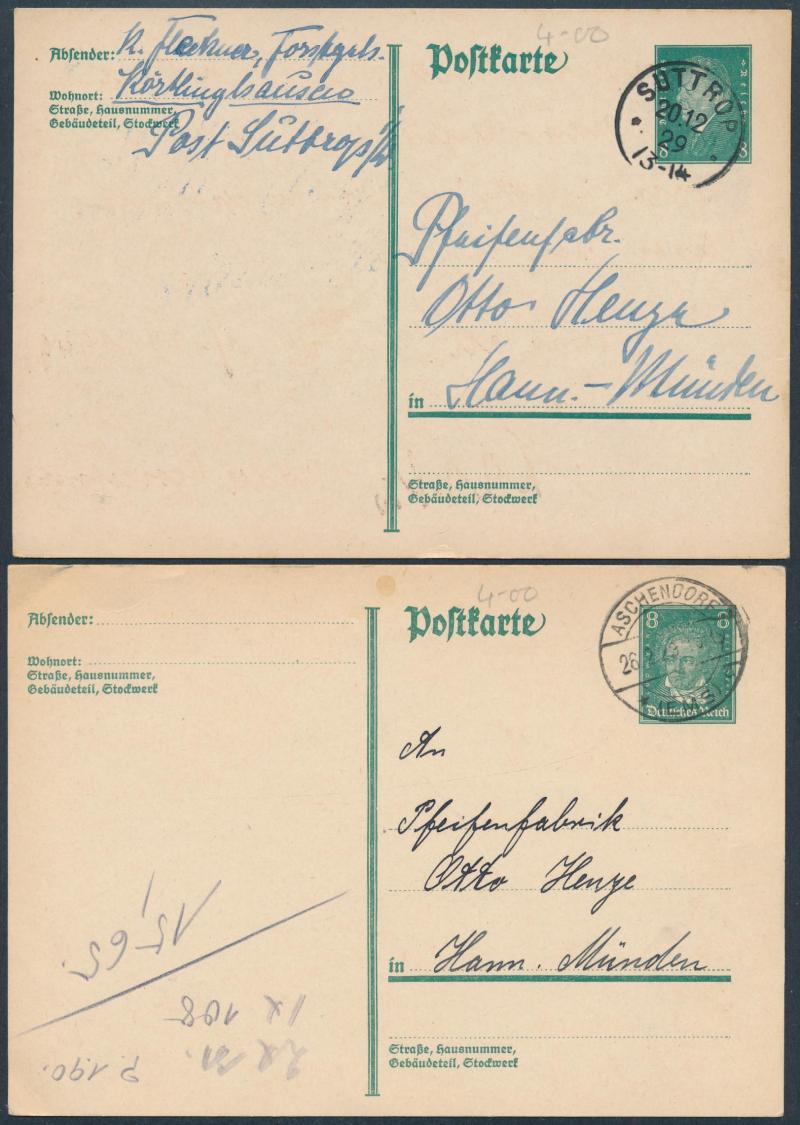 4-00
Absender: K. Fleckner, Forstgeh.
Wohnort: Körtlinghausen
Straße, Hausnummer,
Gebäudeteil, Stockwerk
Post Suttrop i/W
Postkarte
8 8
SUTTROP
20.12
29
13-14
Pfeifenfabr.
Otto Henze
in Hann.-Münden
Straße, Hausnummer,
Gebäudeteil, Stockwerk
4-00
Absender:
Wohnort:
Straße, Hausnummer,
Gebäudeteil, Stockwerk
Postkarte
8 8
Deutsches Reich
ASCHENDORF
26.
(EMS)
An
Pfeifenfabrik
Otto Henze
in Hann. Münden
Straße, Hausnummer,
Gebäudeteil, Stockwerk
P. 190.
1 x 108
15,65.